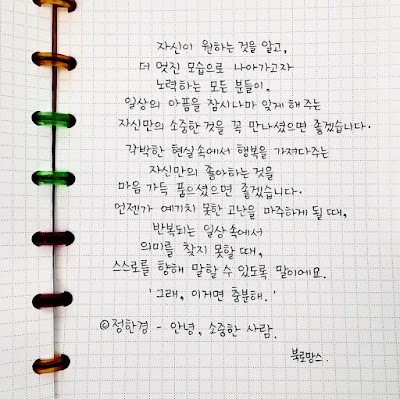 자신이 원하는 것을 알고,
더 멋진 모습으로 나아가고자
노력하는 모든 분들이,
일상의 아픔을 잠시나마 잊게 해 주는
자신만의 소중한 것을 꼭 만나셨으면 좋겠습니다.
각박한 현실 속에서 행복을 가져다주는
자신만의 좋아하는 것을
마음 가득 품으셨으면 좋겠습니다.
언젠가 예기치 못한 고난을 마주하게 될 때,
반복되는 일상 속에서
의미를 찾지 못할 때,
스스로를 향해 말할 수 있도록 말이에요.
'그래, 이거면 충분해.'
©정한경 - 안녕, 소중한 사람.
북로망스.